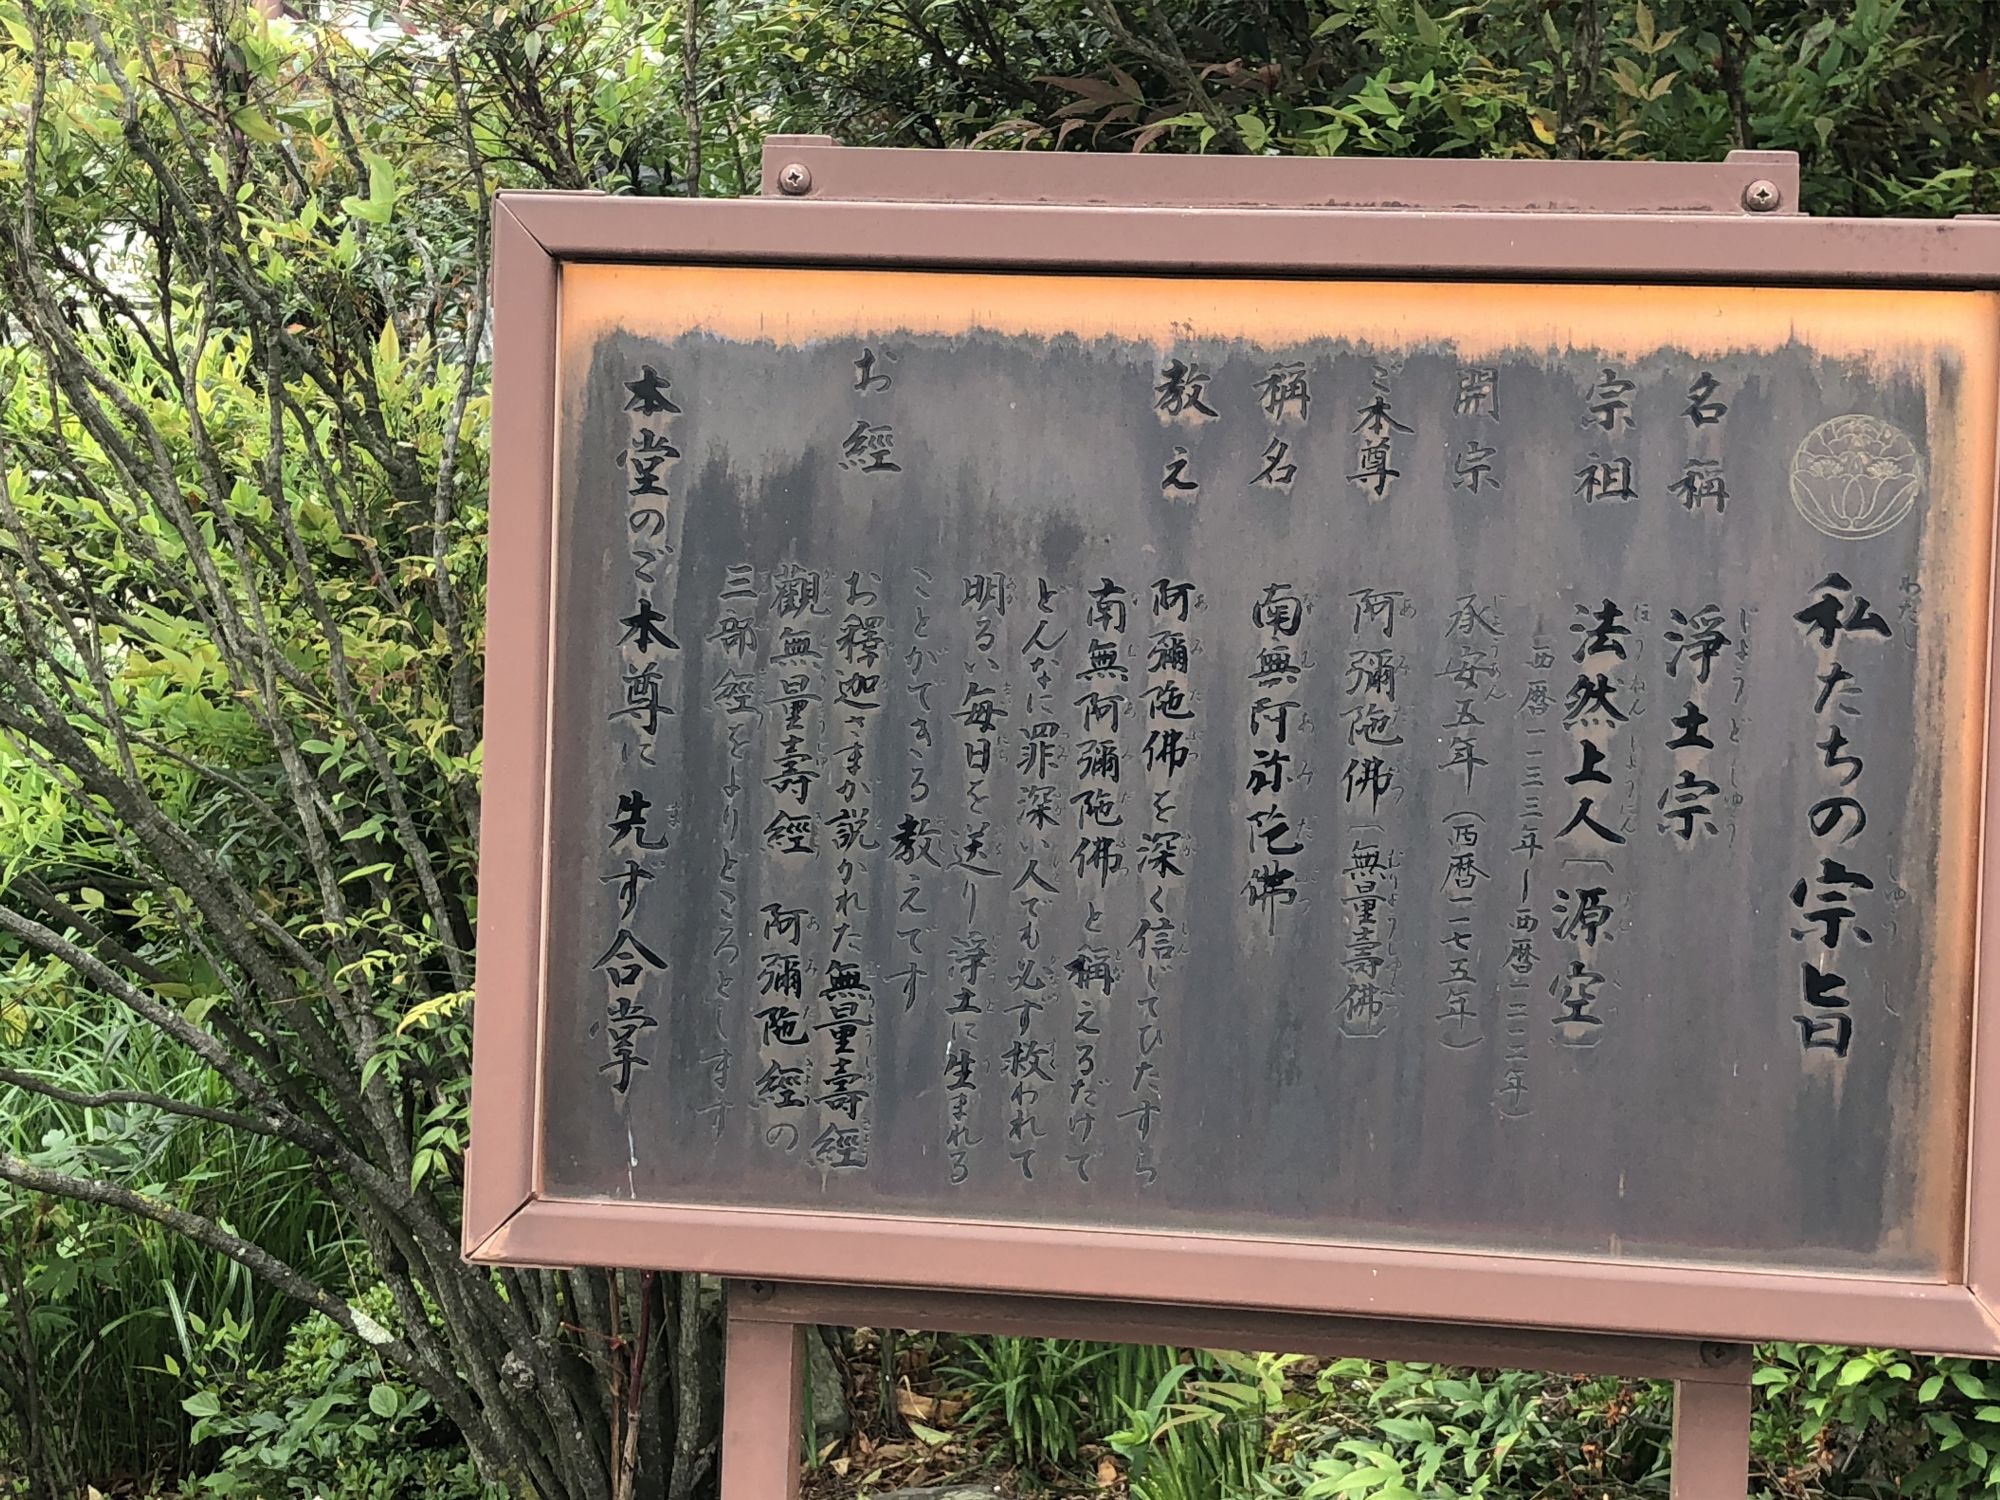 私たちの宗旨
名稱 淨土宗
宗祖 法然上人〔源空〕
西暦一一三三年ー西暦一二一二年
開宗 承安五年(西暦一一七五年)
ご本尊 阿彌陁佛〔無量壽佛〕
稱名 南無阿弥陀佛
教え 阿彌陁佛を深く信じてひたすら
南無阿彌陁佛と稱えるだけで
どんなに罪深い人でも必ず救われて
明るい毎日を送り淨土に生まれる
ことができる教えです
お經 お釋迦さまが説かれた無量壽經
觀無量壽經 阿彌陁經の
三部經をよりどころとします
本堂のご本尊に 先ず合掌